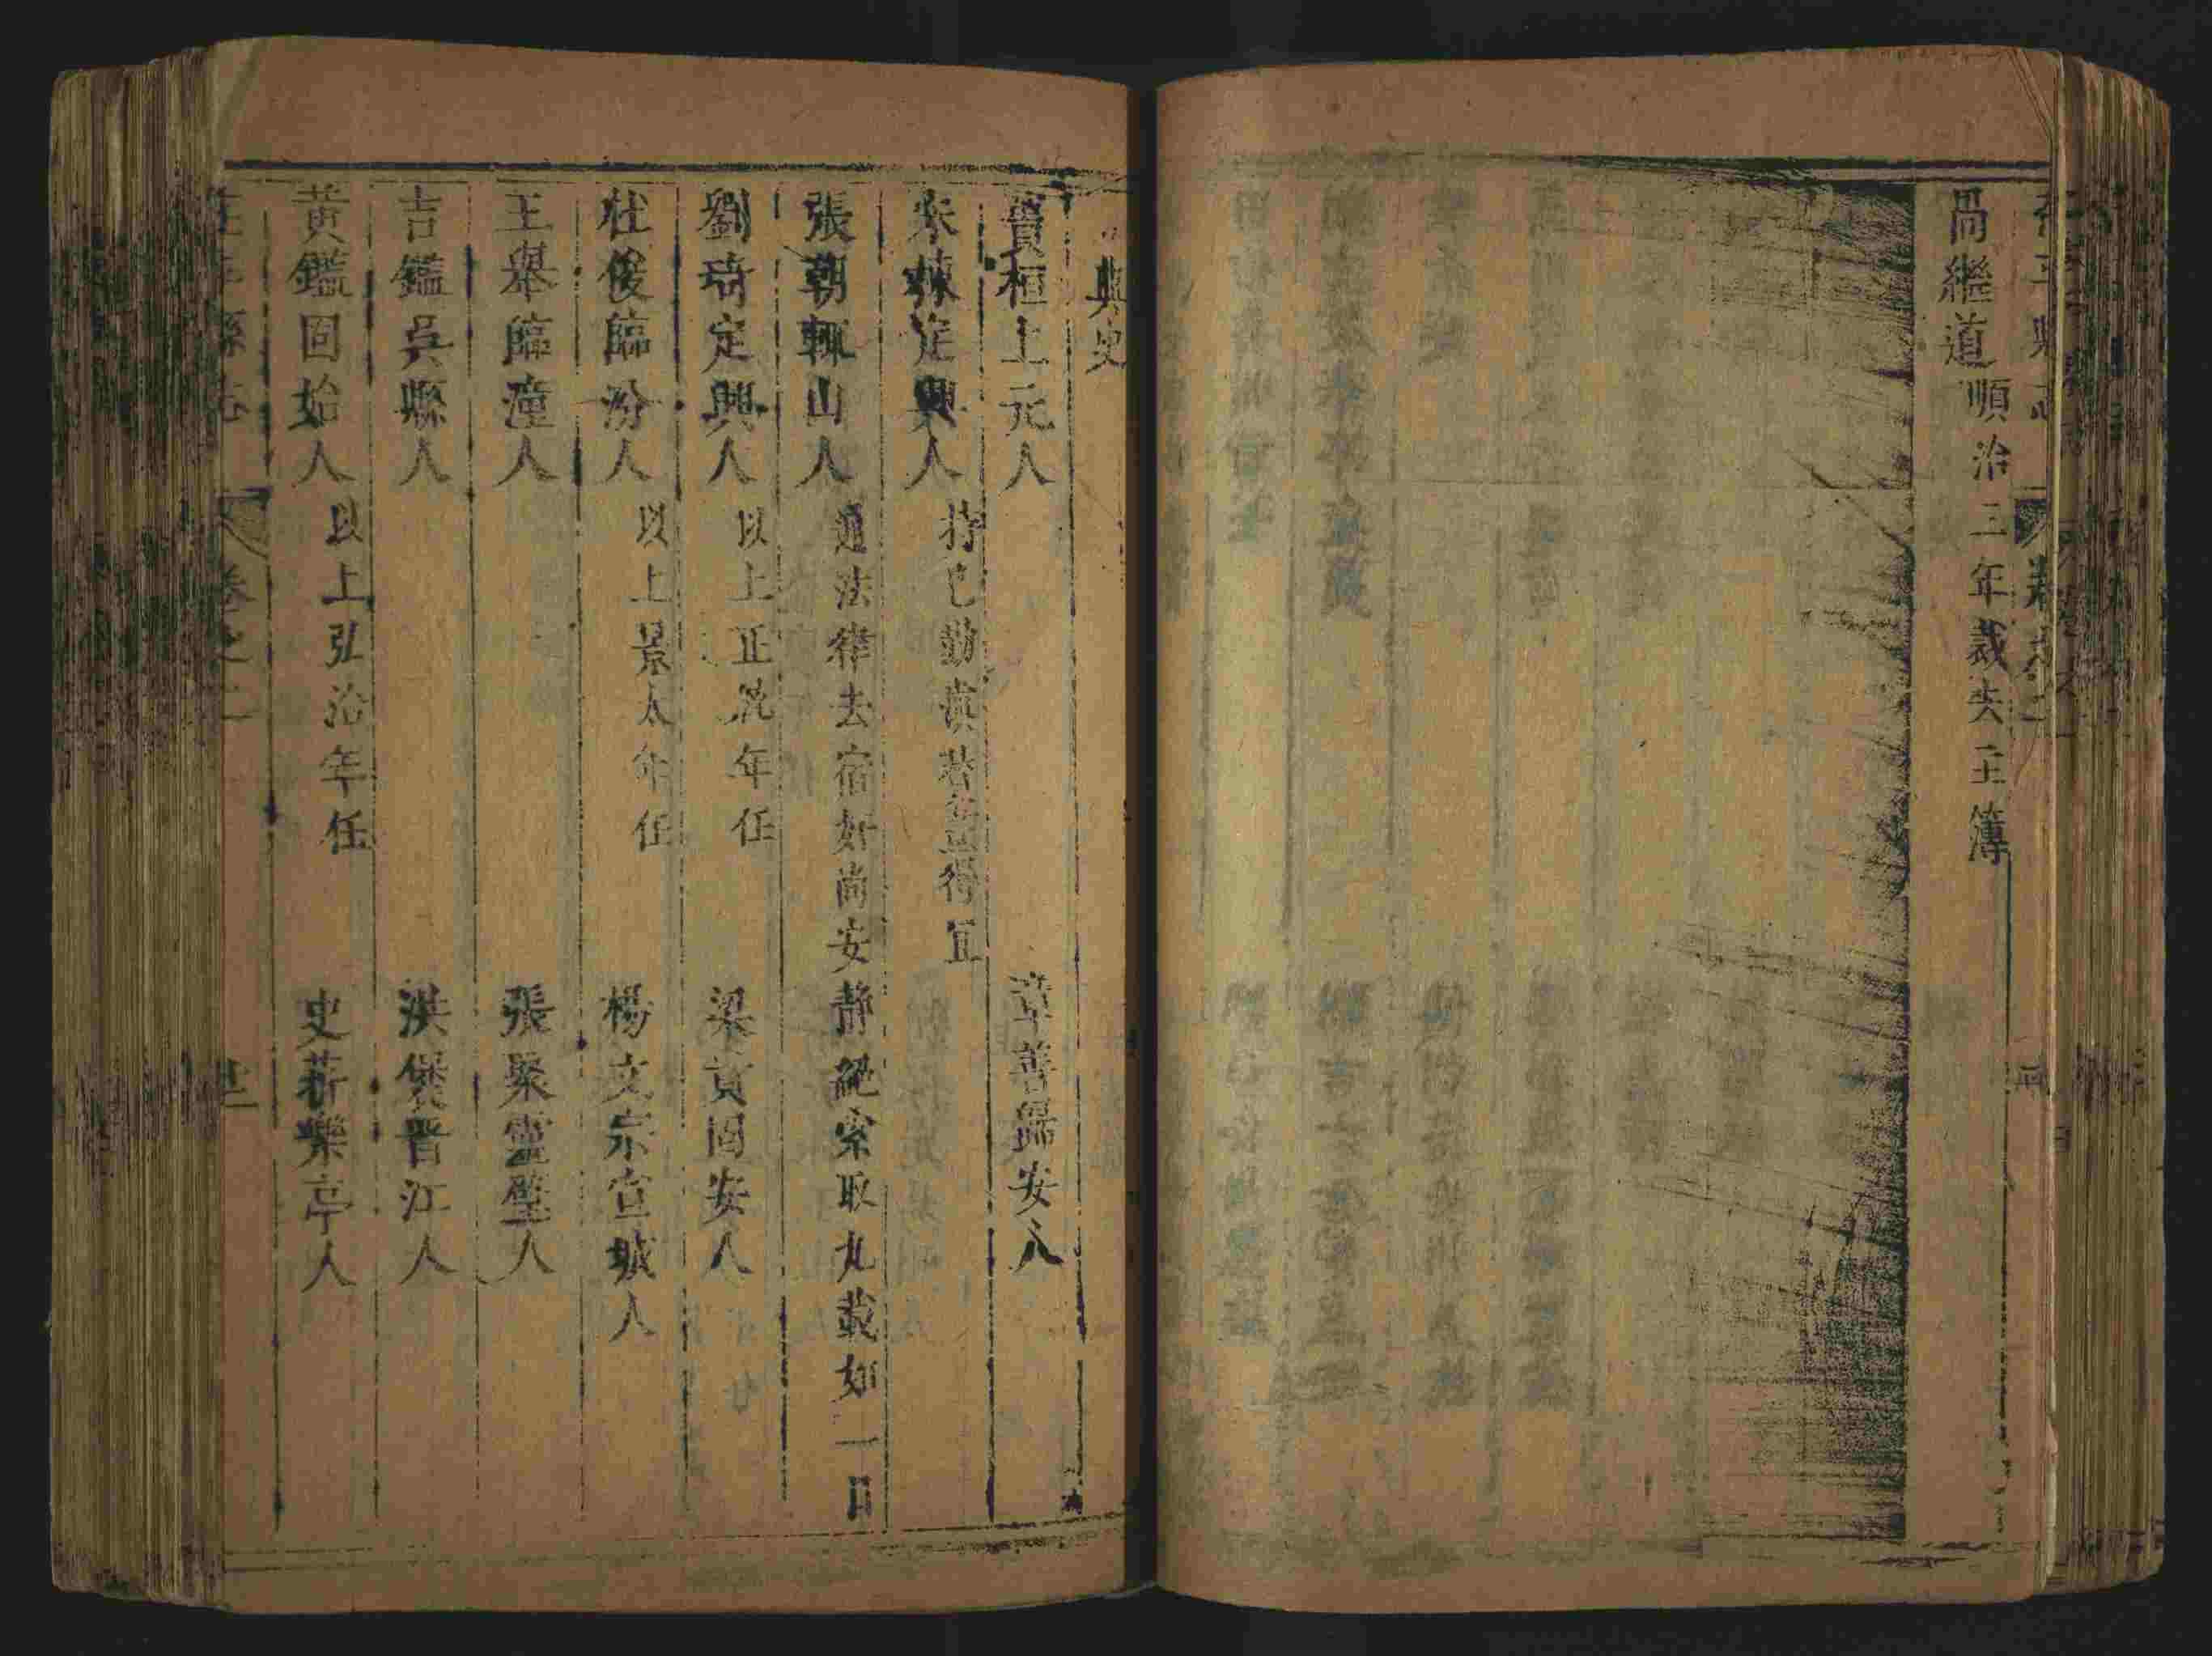 卷之二
咼繼道 順治三年裁去主簿
典史
賈桓上元人 章善歸安人
朱棟定興人 持己勤慎茬益得宜
張朝輒山人 通法律去宿奸尚安靜絕索取九載如一日
劉琦定興人 以上正統年任 梁貢固安人
杜俊臨汾人 以上景太年任 楊文宗宣城人
王舉臨潼人 張聚靈璧人
吉鑑吳縣人 洪裦晋江人
黃鑑固始人 以上弘治年任 史菥樂亭人
縣志 卷之二